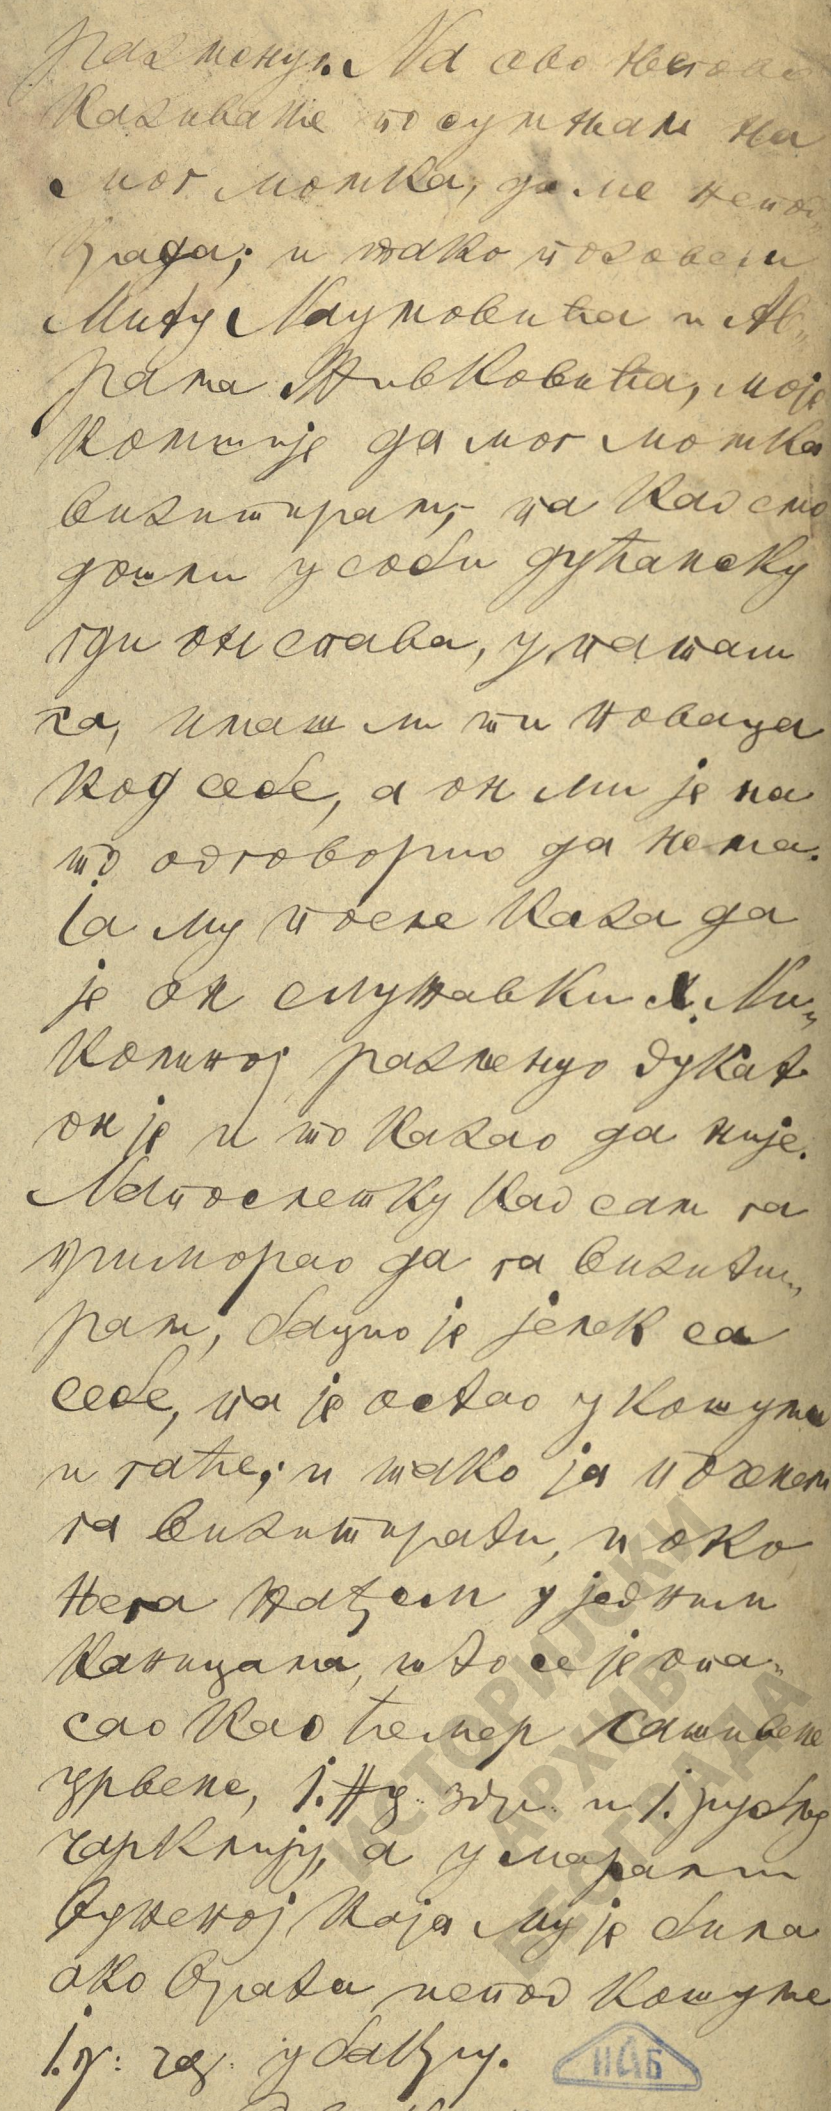 размену. На ово његово
казивање посумњам на
мог момка, да ме непо„
крада; и тако позовем
Миту Наумовића и Ав„
рама Живковића, моје
комшије да мог момка
визитирам, па кад смо
дошли у соби дућанску
гди он спава, упитам
га, имаш ли ти новаца
код себе, а он ми је на
то одговорио да нема.
Ја му после каза да
је он служавки Х. Ни„
колиној разменуо дукат
он је и то казао да није.
Напослетку кад сам га
приморао да га визити„
рам, бацио је јелек са
себе, па је остао у кошуљи
и гаће; и тако ја почнем
га визитирати, и око
њега нађем у једним
каницама, што се је опа„
сао као ћемер сашивене
црвене, 1. # ц. и 1. рубљу
чарклију, а у марами
вуненој која му је била
око врата испод кошуље
1. у бакру.
ИСТОРИЈСКИ
АРХИВ
БЕОГРАДА
ИАБ